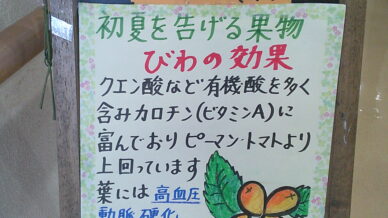 初夏を告げる果物
びわの効果
クエン酸など有機酸を多く
含みカロチン(ビタミンA)に
富んでおりピーマン・トマトより
上回っています
葉には高血圧
動脈硬化